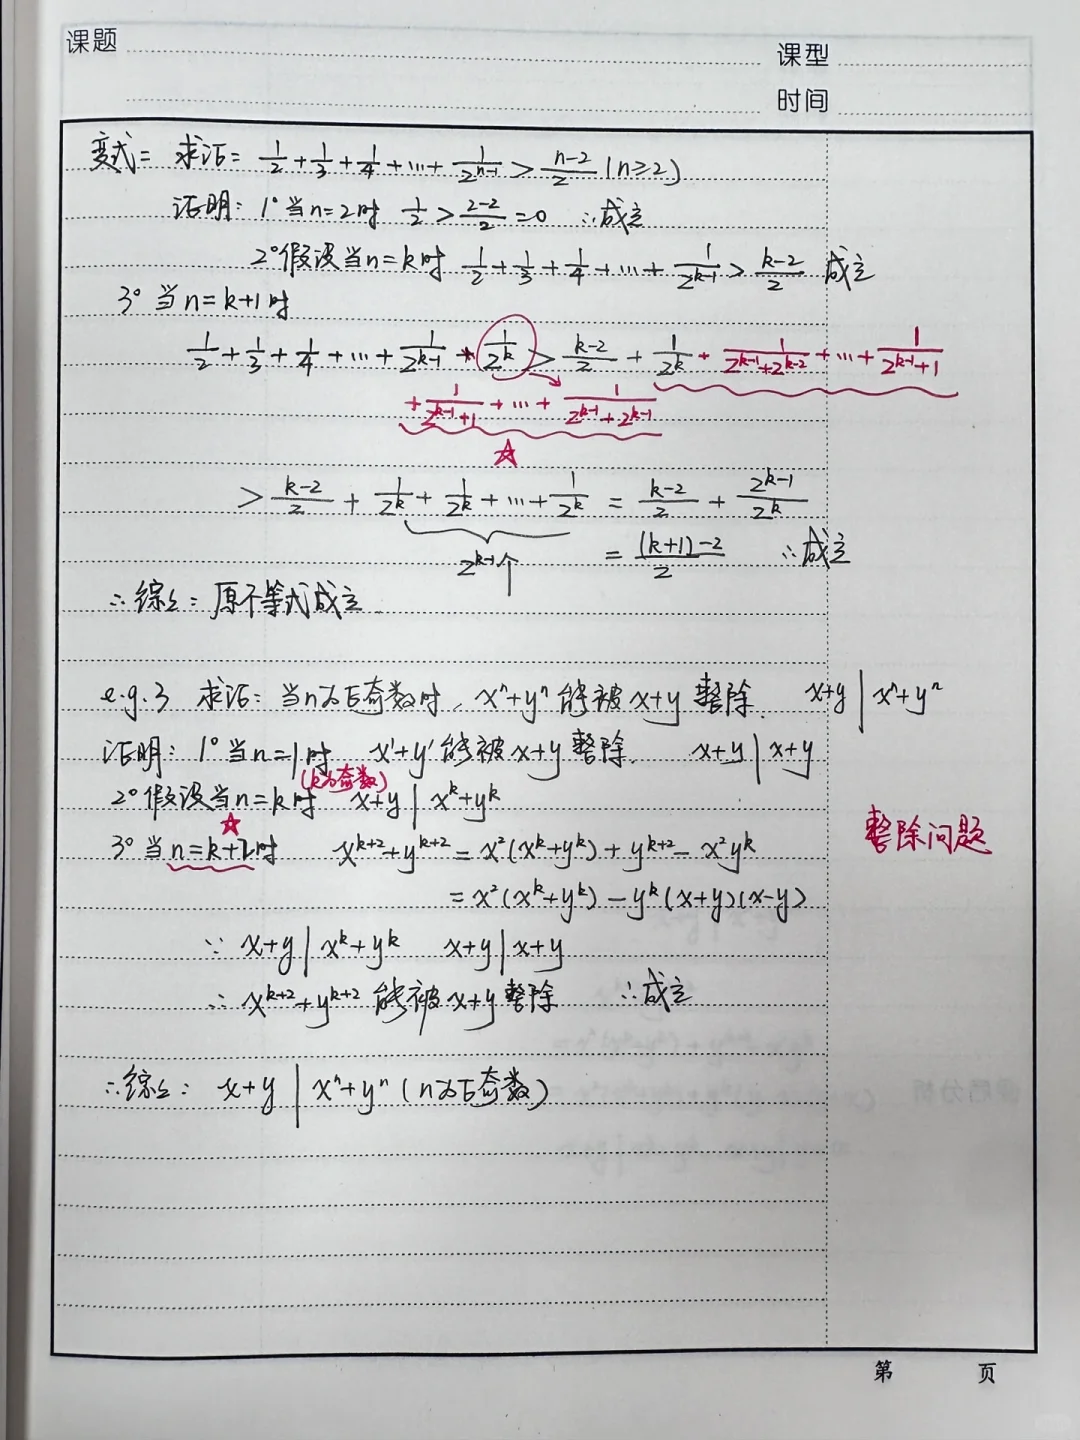 课题
课型
时间
变式: 求证: 1/2 + 1/3 + 1/4 + … + 1/2^(n-1) > (n-2)/2 (n≥2)
证明: 1° 当n=2时 1/2 > (2-2)/2 = 0 ∴成立
2° 假设当n=k时 1/2 + 1/3 + 1/4 + … + 1/2^(k-1) > (k-2)/2 成立
3° 当n=k+1时
1/2 + 1/3 + 1/4 + … + 1/2^(k-1) + 1/2^k > (k-2)/2 + 1/2^k + 1/(2^(k-1)+2^(k-2)) + … + 1/(2^(k-1)+1)
+ 1/(2^(k-1)+1) + … + 1/(2^(k-1)+2^(k-1))
☆
> (k-2)/2 + 1/2^k + 1/2^k + … + 1/2^k = (k-2)/2 + 2^(k-1)/2^k
2^(k-1)个 = ((k+1)-2)/2 ∴成立
∴综上: 原不等式成立
e.g.3 求证: 当n为正奇数时, xⁿ+yⁿ能被x+y整除. x+y | xⁿ+yⁿ
证明: 1° 当n=1时 x¹+y¹能被x+y整除. x+y | x+y
(k为奇数)
2° 假设当n=k时 x+y | x^k+y^k
☆
整除问题
3° 当n=k+2时 x^(k+2)+y^(k+2) = x²(x^k+y^k)+y^(k+2)-x²y^k
= x²(x^k+y^k)-y^k(x+y)(x-y)
∵ x+y | x^k+y^k x+y | x+y
∴ x^(k+2)+y^(k+2)能被x+y整除 ∴成立
∴综上: x+y | xⁿ+yⁿ (n为正奇数)
第 页